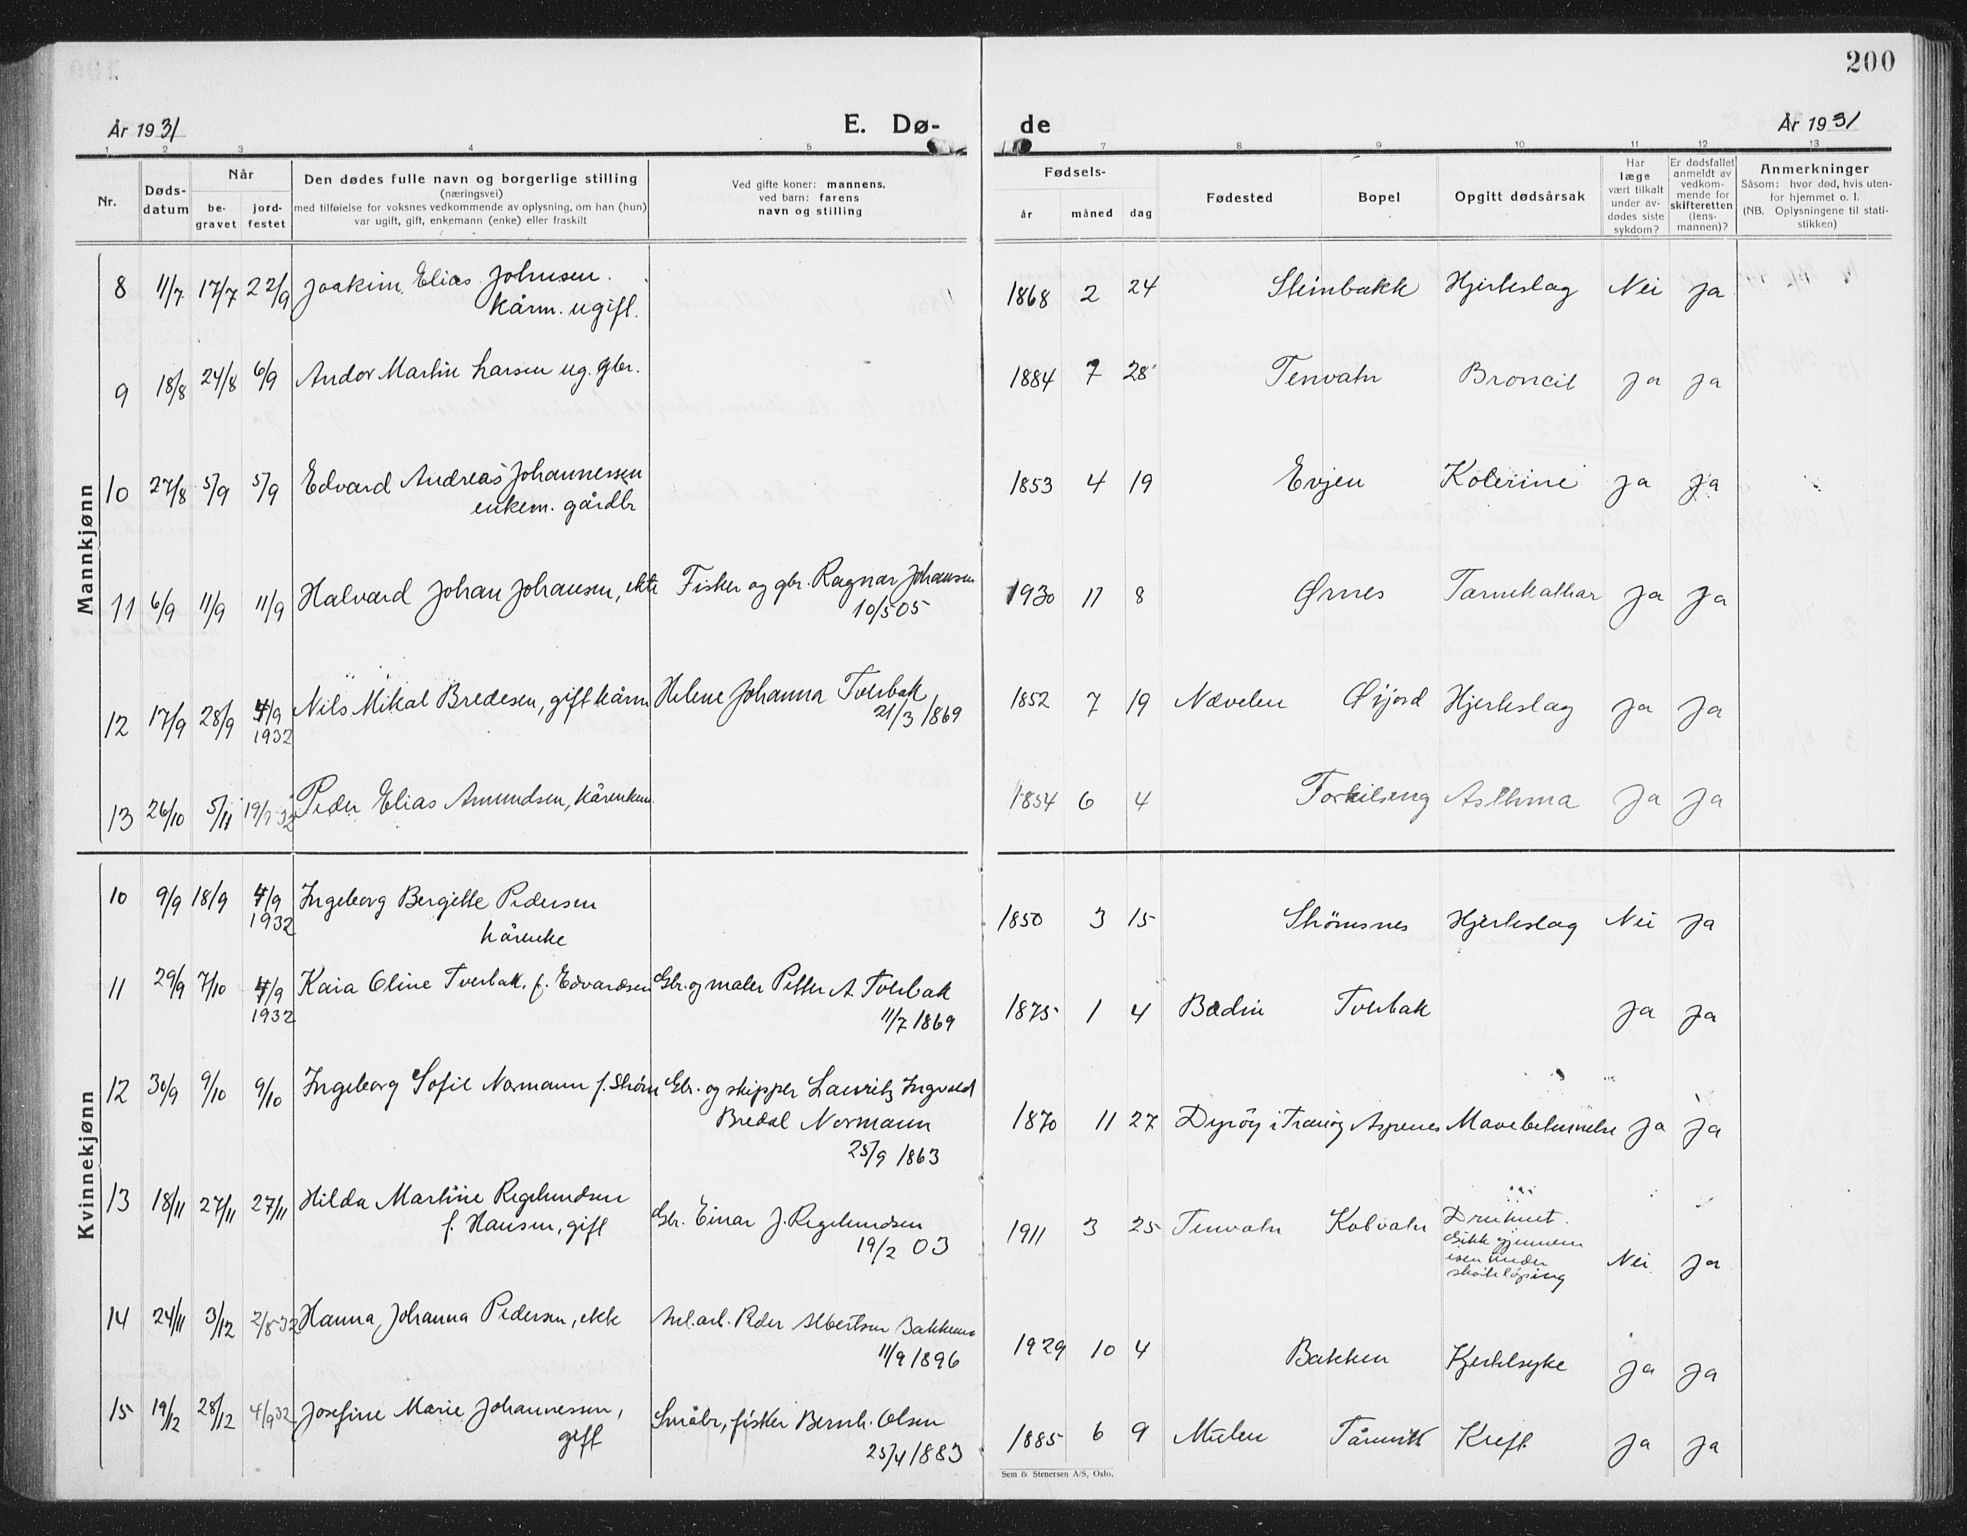 200
År 1931
E. Dø-
de
År 1931
1 2 3 4 5 7 8 9 10 11 12 13
Nr.
Døds-
datum
Når
be-
gravet
jord-
festet
Den dødes fulle navn og borgerlige stilling
(næringsvei)
med tilføielse for voksnes vedkommende av oplysning, om han (hun)
var ugift, gift, enkemann (enke) eller fraskilt
Ved gifte koner: mannens,
ved barn: farens
navn og stilling
Fødsels-
år måned dag
Fødested
Bopel
Opgitt dødsårsak
Har
læge
vært tilkalt
under av-
dødes siste
sykdom?
Er dødsfallet
anmeldt av
vedkom-
mende for
skifteretten
(lens-
mannen)?
Anmerkninger
Såsom: hvor død, hvis uten-
for hjemmet o. l.
(NB. Oplysningene til stati-
stikken)
Mannkjønn
8 11/7 17/7 22/9 Joakim Elias Johnsen. 1868 2 24 Steinbakk Hjerteslag Nei ja
kårm. ugift.
9 18/8 24/8 6/9 Andor Martin Larsen ug. gbr. 1884 7 28 Tenvatn Broncit ja ja
10 27/8 5/9 5/9 Edvard Andreas Johannessen 1853 4 19 Evjen Kolerine ja ja
enkem. gårdbr
11 6/9 11/9 11/9 Halvard Johan Johansen, ekte Fisker og gbr. Ragnar Johansen 1930 11 8 Ørnes Tarmkathar ja ja
10/5 05
12 17/9 28/9 4/9 Nils Mikal Bredesen, gift kårm Helene Johanna Tverbak 1852 7 19 Nævelen Øijord Hjerteslag ja ja
1932 21/3 1869
13 26/10 5/11 19/9 32 Peder Elias Amundsen, kårenkem. 1854 6 4 Torkilseng Asthma ja ja
Kvinnekjønn
10 9/9 18/9 4/9 Ingeborg Bergitte Pedersen 1850 3 15 Strømsnes Hjerteslag Nei ja
1932 kårenke
11 29/9 7/10 4/9 Kaia Oline Tverbak. f. Edvardsen Gbr. og maler Petter A Tverbak 1875 1 4 Bodin Tverbak ja ja
1932 11/7 1869
12 30/9 9/10 9/10 Ingeborg Sofie Normann f. Strøm Gbr. og skipper Lauritz Ingvald
Bredal Normann 1870 11 27 Dyrøy i Tranøy Aspenes Mavebetennelse ja ja
25/9 1863
13 18/11 27/11 27/11 Hilda Martine Regelundsen
f. Hansen, gift Gbr. Einar J. Regelundsen 1911 3 25 Tenvatn Kobvatn Druknet.
19/2 03 Gikk gjennem
isen under Nei ja
skøiteløping
14 24/11 3/12 2/8 32 Hanna Johanna Pedersen, ekte Peder Albertsen Bakken 1929 10 4 Bakken Kjertelsyke ja ja
11/9 1896
15 19/12 28/12 4/9 32 Josefine Marie Johannessen, Småbr, fisker Bernh. Olsen 1885 6 9 Mulen Tårnvik Kreft. ja ja
gift 25/4 1883
Sem & Stenersen A/S, Oslo.